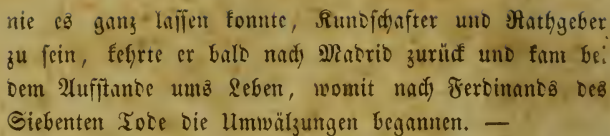 nie es ganz lassen konnte, Kundschafter und Rathgeber
zu sein, kehrte er bald nach Madrid zurück und kam bei
dem Aufstande ums Leben, womit nach Ferdinands des
Siebenten Tode die Umwälzungen begannen. —